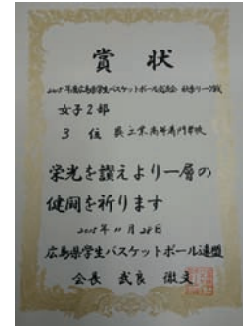 賞状
2015年度広島県学生バスケットボール選手権 秋季リーグ戦
女子2部
3位 呉工業高等専門学校
栄光を讃えより一層の
健闘を祈ります
2015年11月28日
広島県学生バスケットボール連盟
会長 武良 徹文